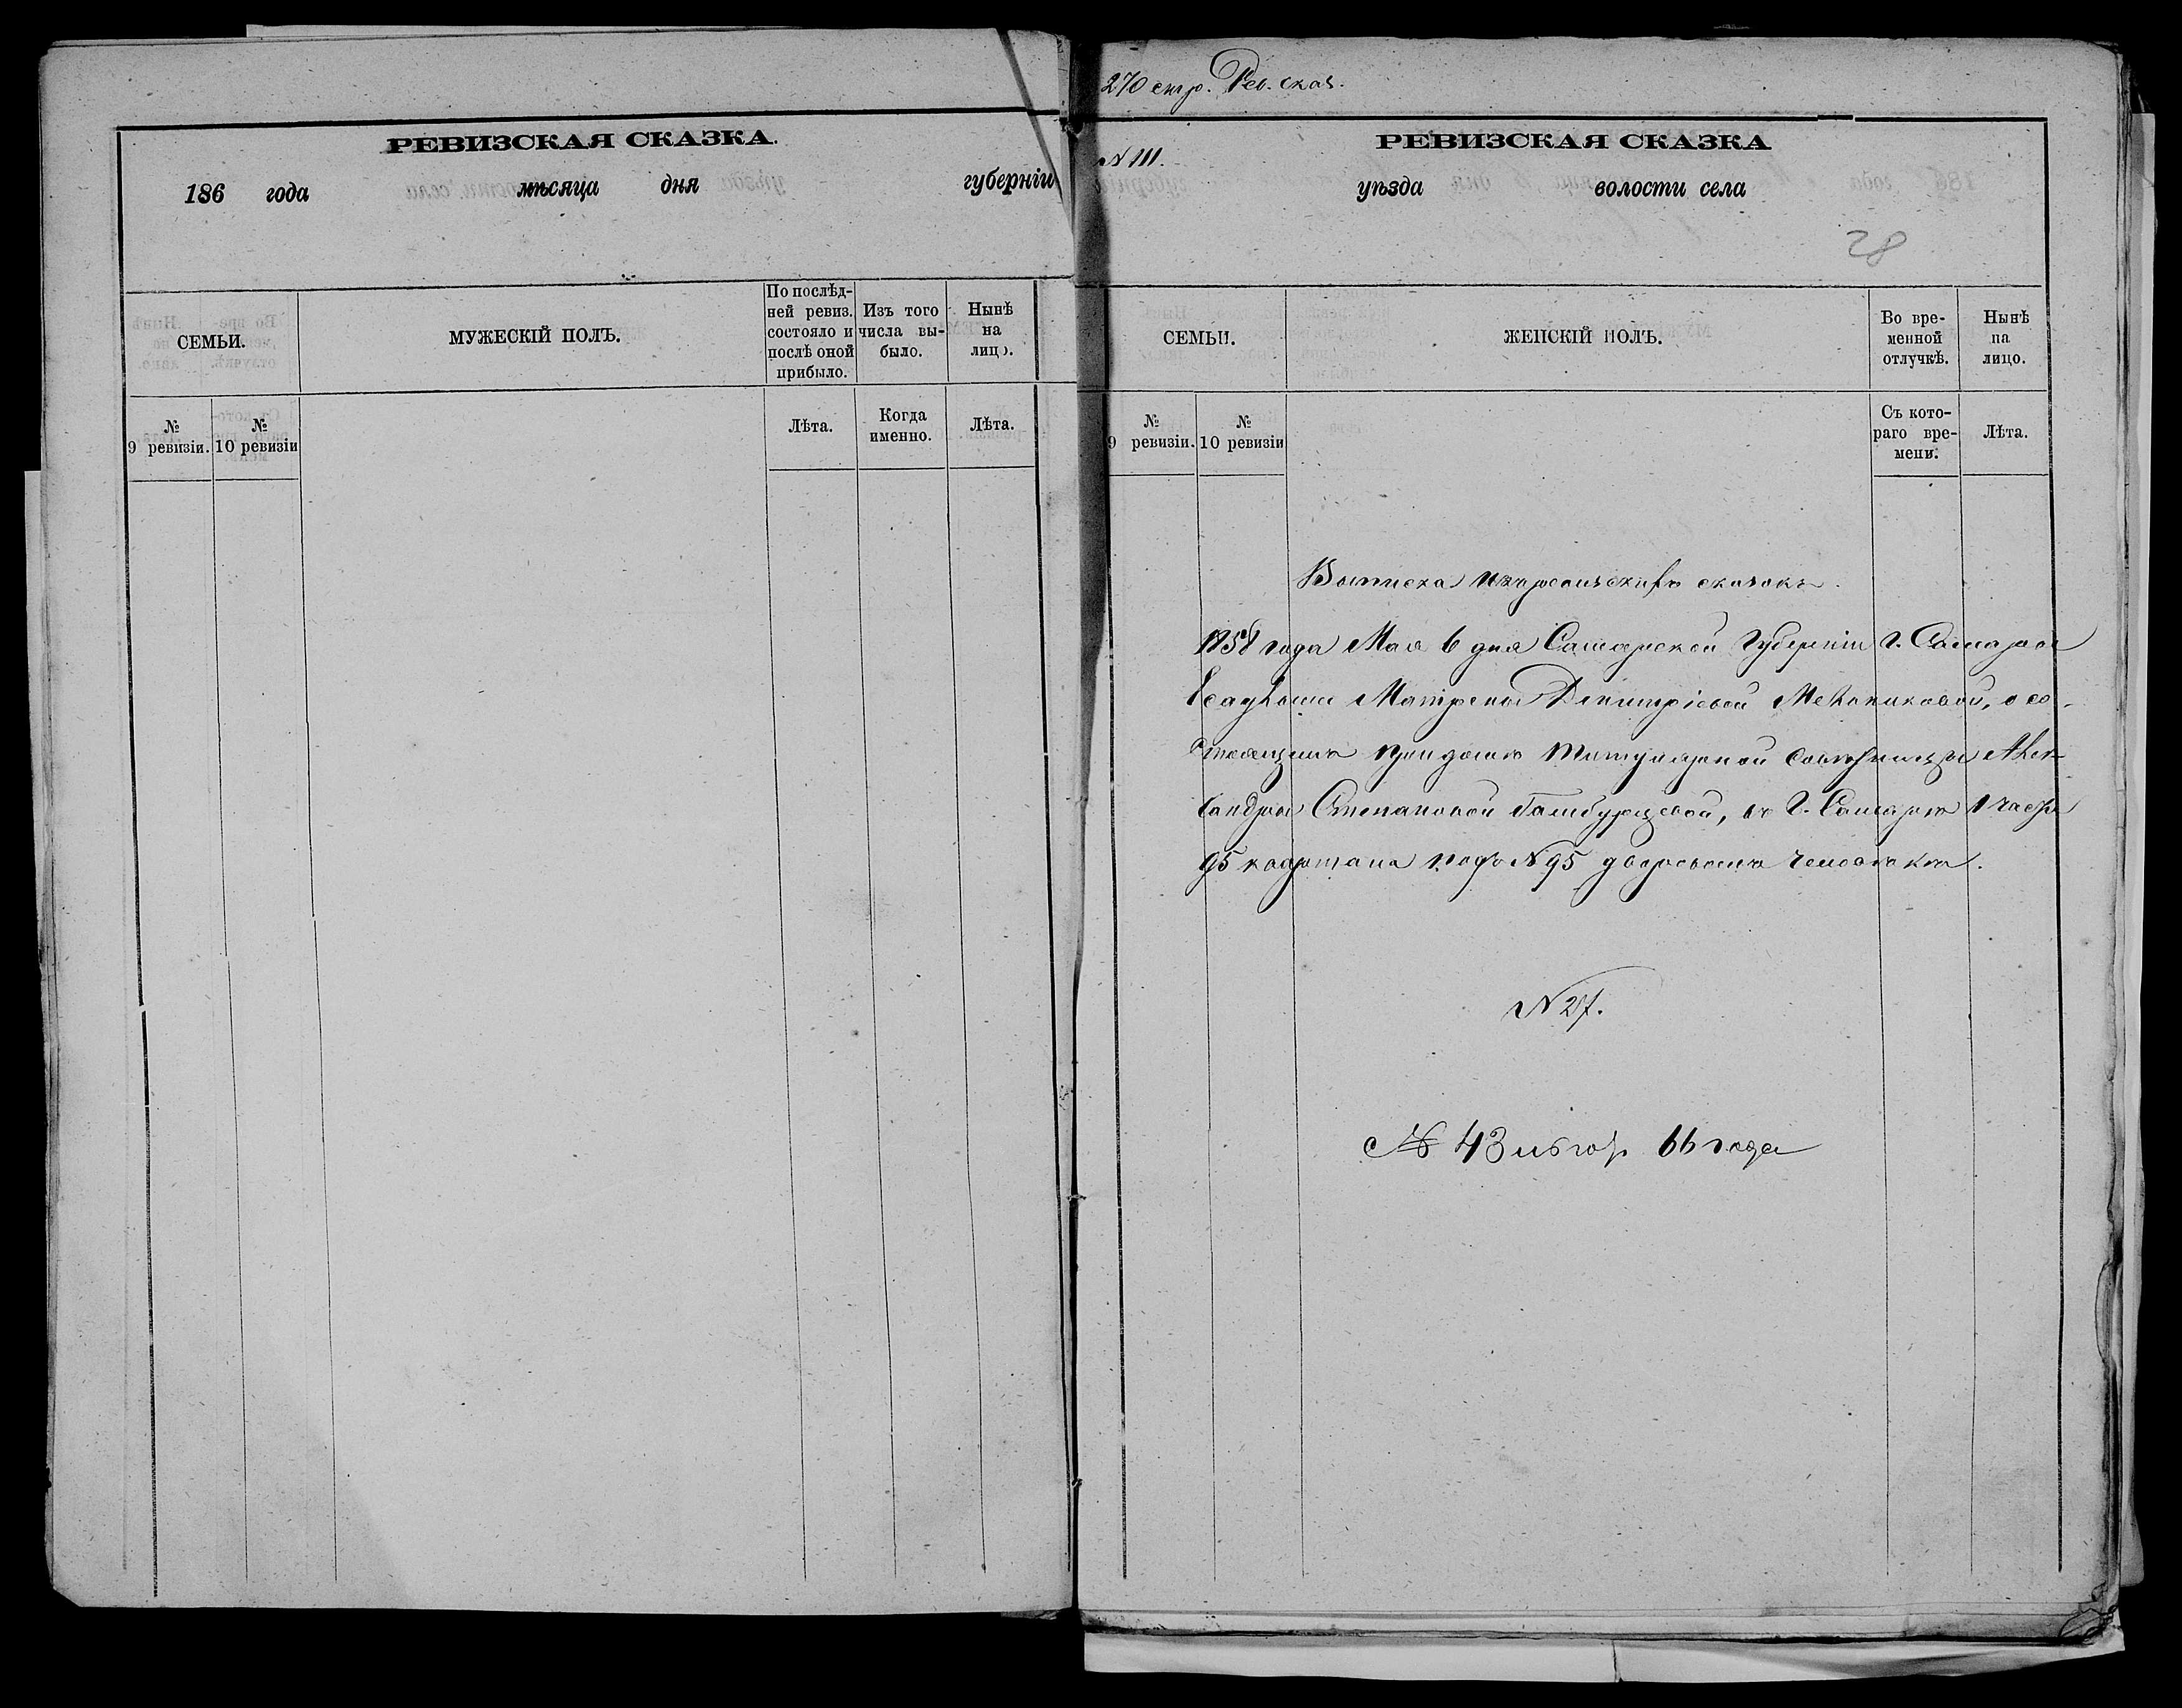 РЕВИЗСКАЯ СКАЗКА.
186 года мѣсяца дня губерніи
СЕМЬИ.
МУЖЕСКІЙ ПОЛЪ.
По послѣд-
ней ревиз.
состояло и
послѣ оной
прибыло.
Изъ того
числа вы-
было.
Нынѣ
на
лицо.
№
9 ревизіи.
№
10 ревизіи
Лѣта.
Когда
именно.
Лѣта.
270 стр. Рев. сказ.
N 111.
РЕВИЗСКАЯ СКАЗКА
уѣзда волости села
28
СЕМЬИ.
ЖЕНСКІЙ ПОЛЪ.
Во вре-
менной
отлучкѣ.
Нынѣ
на
лицо.
№
9 ревизіи.
№
10 ревизіи
Съ кото-
раго вре-
мени.
Лѣта.
Выписка изъ ревизскихъ сказокъ.
1858 года Мая 6 дня Самарской Губерніи г. Самары
Матрены Димитріевой о со-
стоящемъ при домѣ Титулярной Совѣтницы Алек-
сандры Степановой въ г. Самарѣ 1 части
95 квартала подъ N 95 дворовомъ человѣкѣ.
N 27.
№ 43 66 года